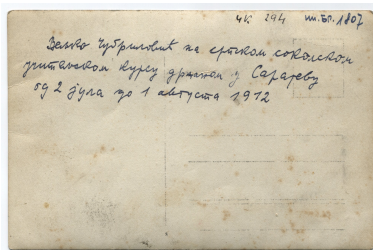 ЧК 294 инв. бр. 1807
Вељко Чубриловић на српском соколском
учитељском курсу држаном у Сарајеву
од 2 јула до 1 августа 1912